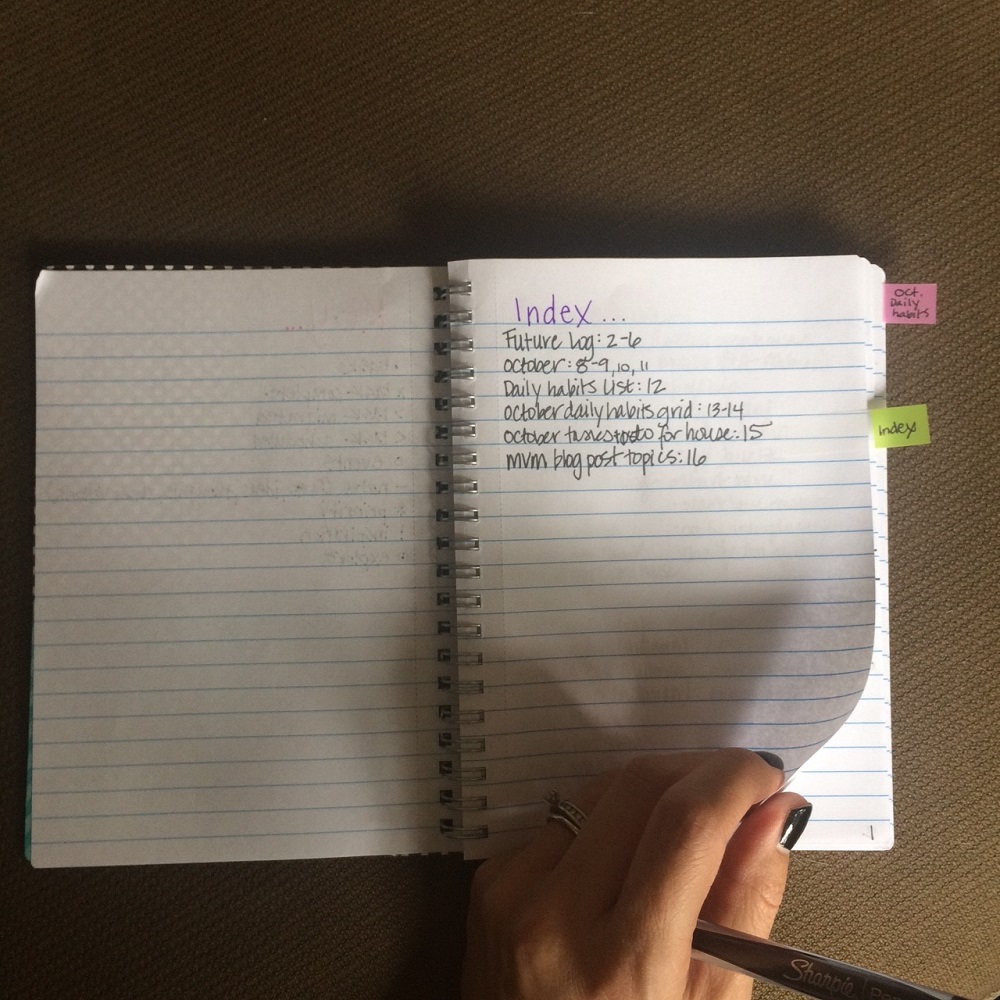 Index...
Future Log: 2-6
October: 8-9, 10, 11
Daily habits List: 12
october daily habits grid: 13-14
october tasks to do for house: 15
mvm blog post topics: 16
Oct.
Daily
habits
Index
1
Sharpie